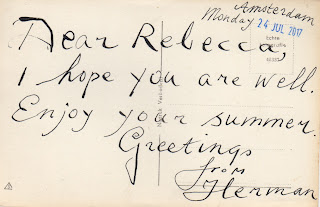 Amsterdam
Monday 24 JUL 2017
Dear Rebecca,
I hope you are well.
Enjoy your summer.
Greetings
from
Herman